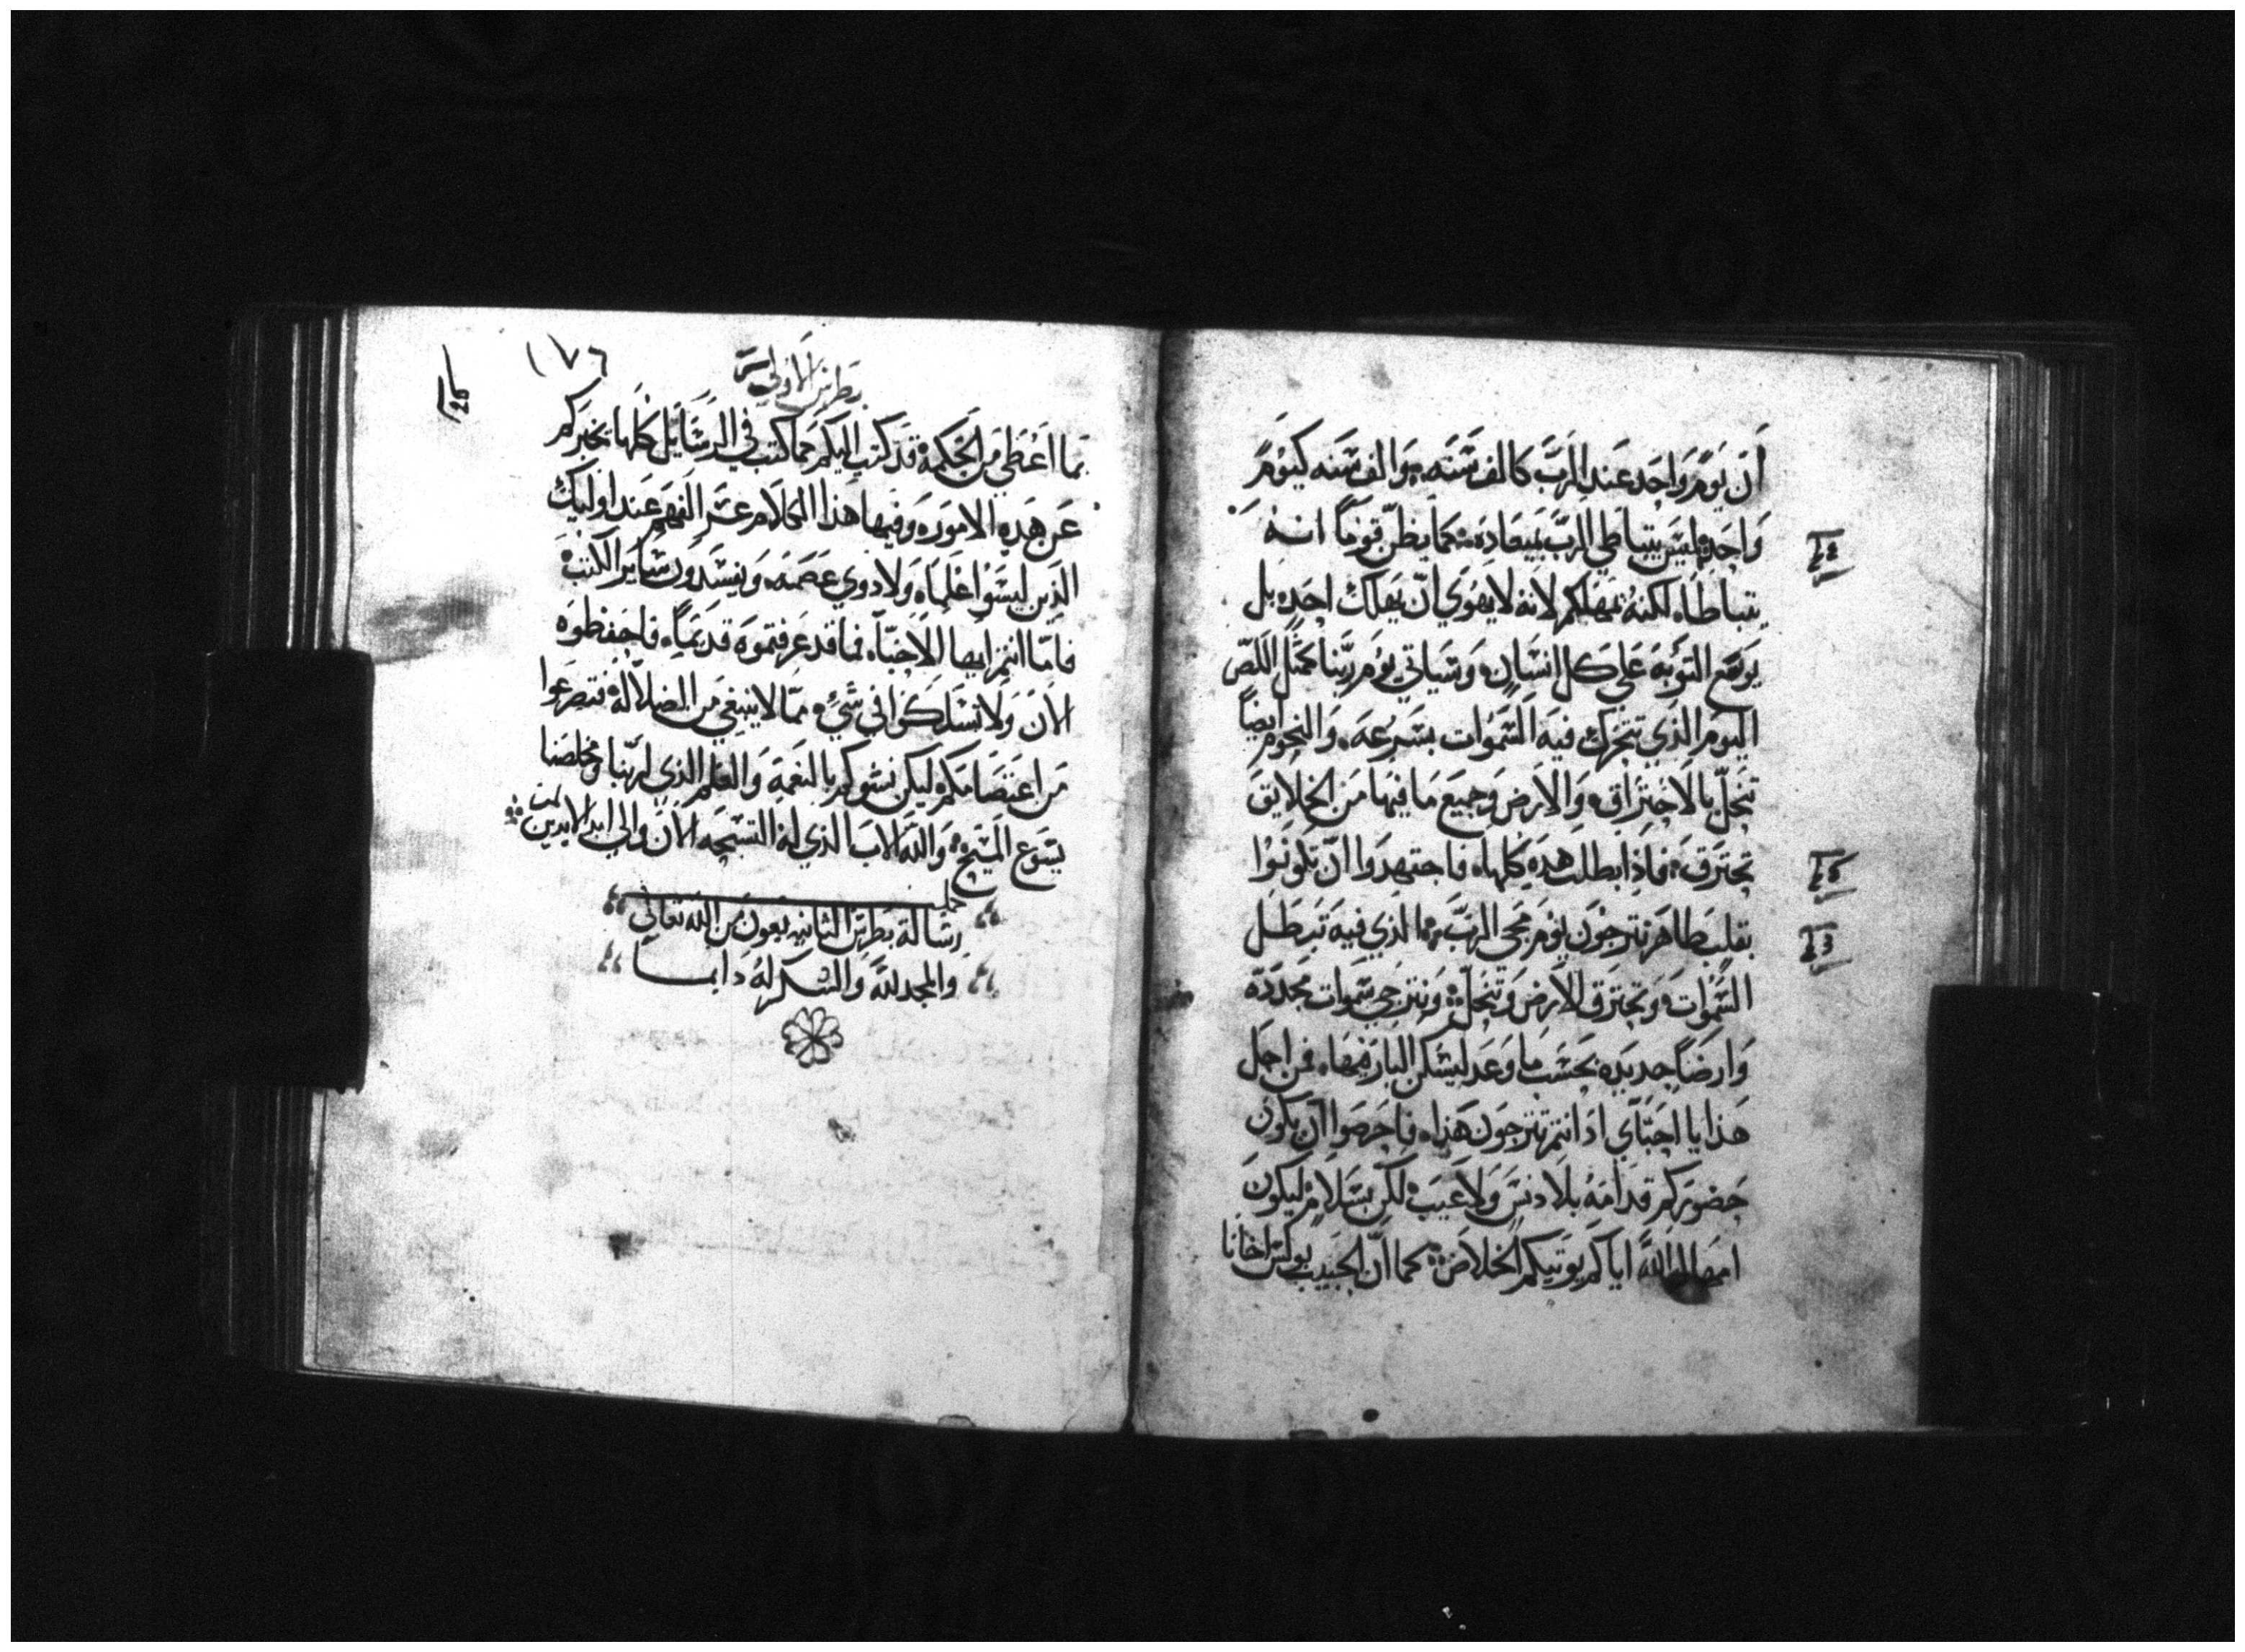 ان يوم واحد عند الرب كالف سنه، والف سنه كيوم
واحد؛ ليس يتباطي الرب بميعاده؛ كما يظن قوماً انه
يتباطاه لكنه يمهلكم لانه لا يهوي ان يهلك احد، بل
يوسع التوبه علي كل انسان، وسياتي يوم ربنا كمثل اللص
اليوم الذي تتحرك فيه السموات بسرعه، والنجوم ايضاً
تنحل بالاحتراق، والارض وجميع ما فيها من الخلايق
تحترق، فاذا بطلت هذه كلها، فاجتهدوا ان تكونوا
بقلب طاهر تترجون يوم مجي الرب، الذي فيه تبطل
السموات، وتحترق الارض وتنحل؛ ونترجي سموات مجدده
وارضاً جديده بحسب ما وعد ليسكن البار فيها، فمن اجل
هذا يا احباي اذ انتم تترجون هذا، فاحرصوا ان يكون
حضوركم قدامه بلا دنس ولا عيب، لكن بسلام، ليكون
امهال الله اياكم يوتيكم الخلاص؛ كما ان الحبيب بولس اخانا
١٧٦
بطرس الاولي
بما اعطي من الحكمة قد كتب اليكم كما كتب في الرسايل كلها، تخبركم
عن هذه الامور، وفيها هذا الكلام عسر الفهم عند اوليك
الذين ليسوا علماء، ولا ذوي عصمه، ويفسدون ساير الكتب
فاما انتم ايها الاحباء، فما قد عرفتموه قديماً، فاحفظوه
الان ولا تسلكوا في شيء، مما لا ينبغي من الضلاله، فتصرعوا
من اعتصامكم، ليكن نشوكم بالنعمة والعلم الذي لربنا ومخلصنا
يسوع المسيح، والله الاب الذي له التسبحه الان والي ابد الابدين امين
رسالة بطرس الثانيه بعون من الله تعالي
والمجد لله والشكر له دايما